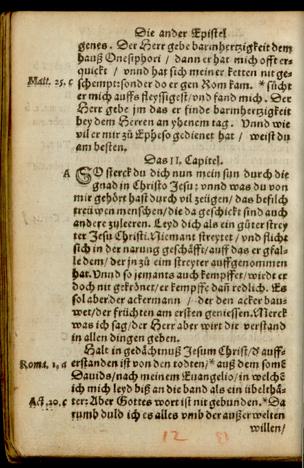 Die ander Epistel
genes. Der Herr gebe barmhertzigkeit dem
hauß Onesiphori / dann er hat mich offt er-
quickt / vnnd hat sich meiner ketten nit ge-
Matt. 25. c schempt: sonder do er gen Rom kam. * sücht
er mich auffs fleyssigest / vnd fand mich. Der
Herr gebe jm das er finde barmhertzigkeit
bey dem Herren an yhenem tag. Vnnd wie
vil er mir zů Epheso gedienet hat / weist du
am besten.
Das II. Capitel.
A SO sterck du dich nun mein sun durch die
gnad in Christo Jesu: vnnd was du von
mir gehört hast durch vil zeügen / das befilch
trewen menschen / die da geschickt sind auch
andere zu leeren. Leyd dich als ein gůter strey
ter Jesu Christi. Niemant streytet / vnd flicht
sich in der narung geschäfft / auff das er gfal-
le dem / der jn zů eim streyter auffgenommen
har. Vnnd so jemants auch kempffet / wirdt er
doch nit gekrönet / er kempffe dañ redlich. Es
sol aber der ackermann / der den acker bau-
wet / der früchten am ersten geniessen. Merck
was ich sag / der Herr aber wirt dir verstand
in allen dingen geben.
Halt in gedächtnuß Jesum Christ / d' auff-
Roma. 1, a erstanden ist von den todten / * auß dem somẽ
Dauids / nach meinem Euangelio / in welchẽ
ich mich leyd biß an die band als ein übelthä-
Act. 20. c ter: Aber Gottes wort ist nit gebunden. * Da
rumb duld ich es alles vmb der außerwelten
willen /
12 13